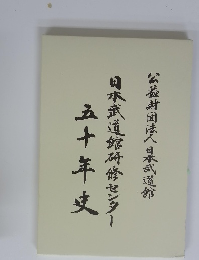 公益財団法人日本武道館
日本武道館研修センター
五十年史